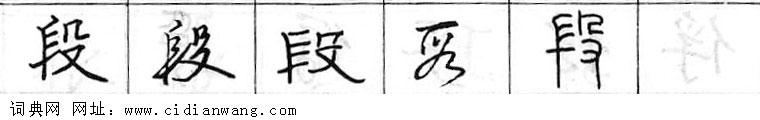 段 段 段 段 段
词典网 网址：www.cidianwang.com